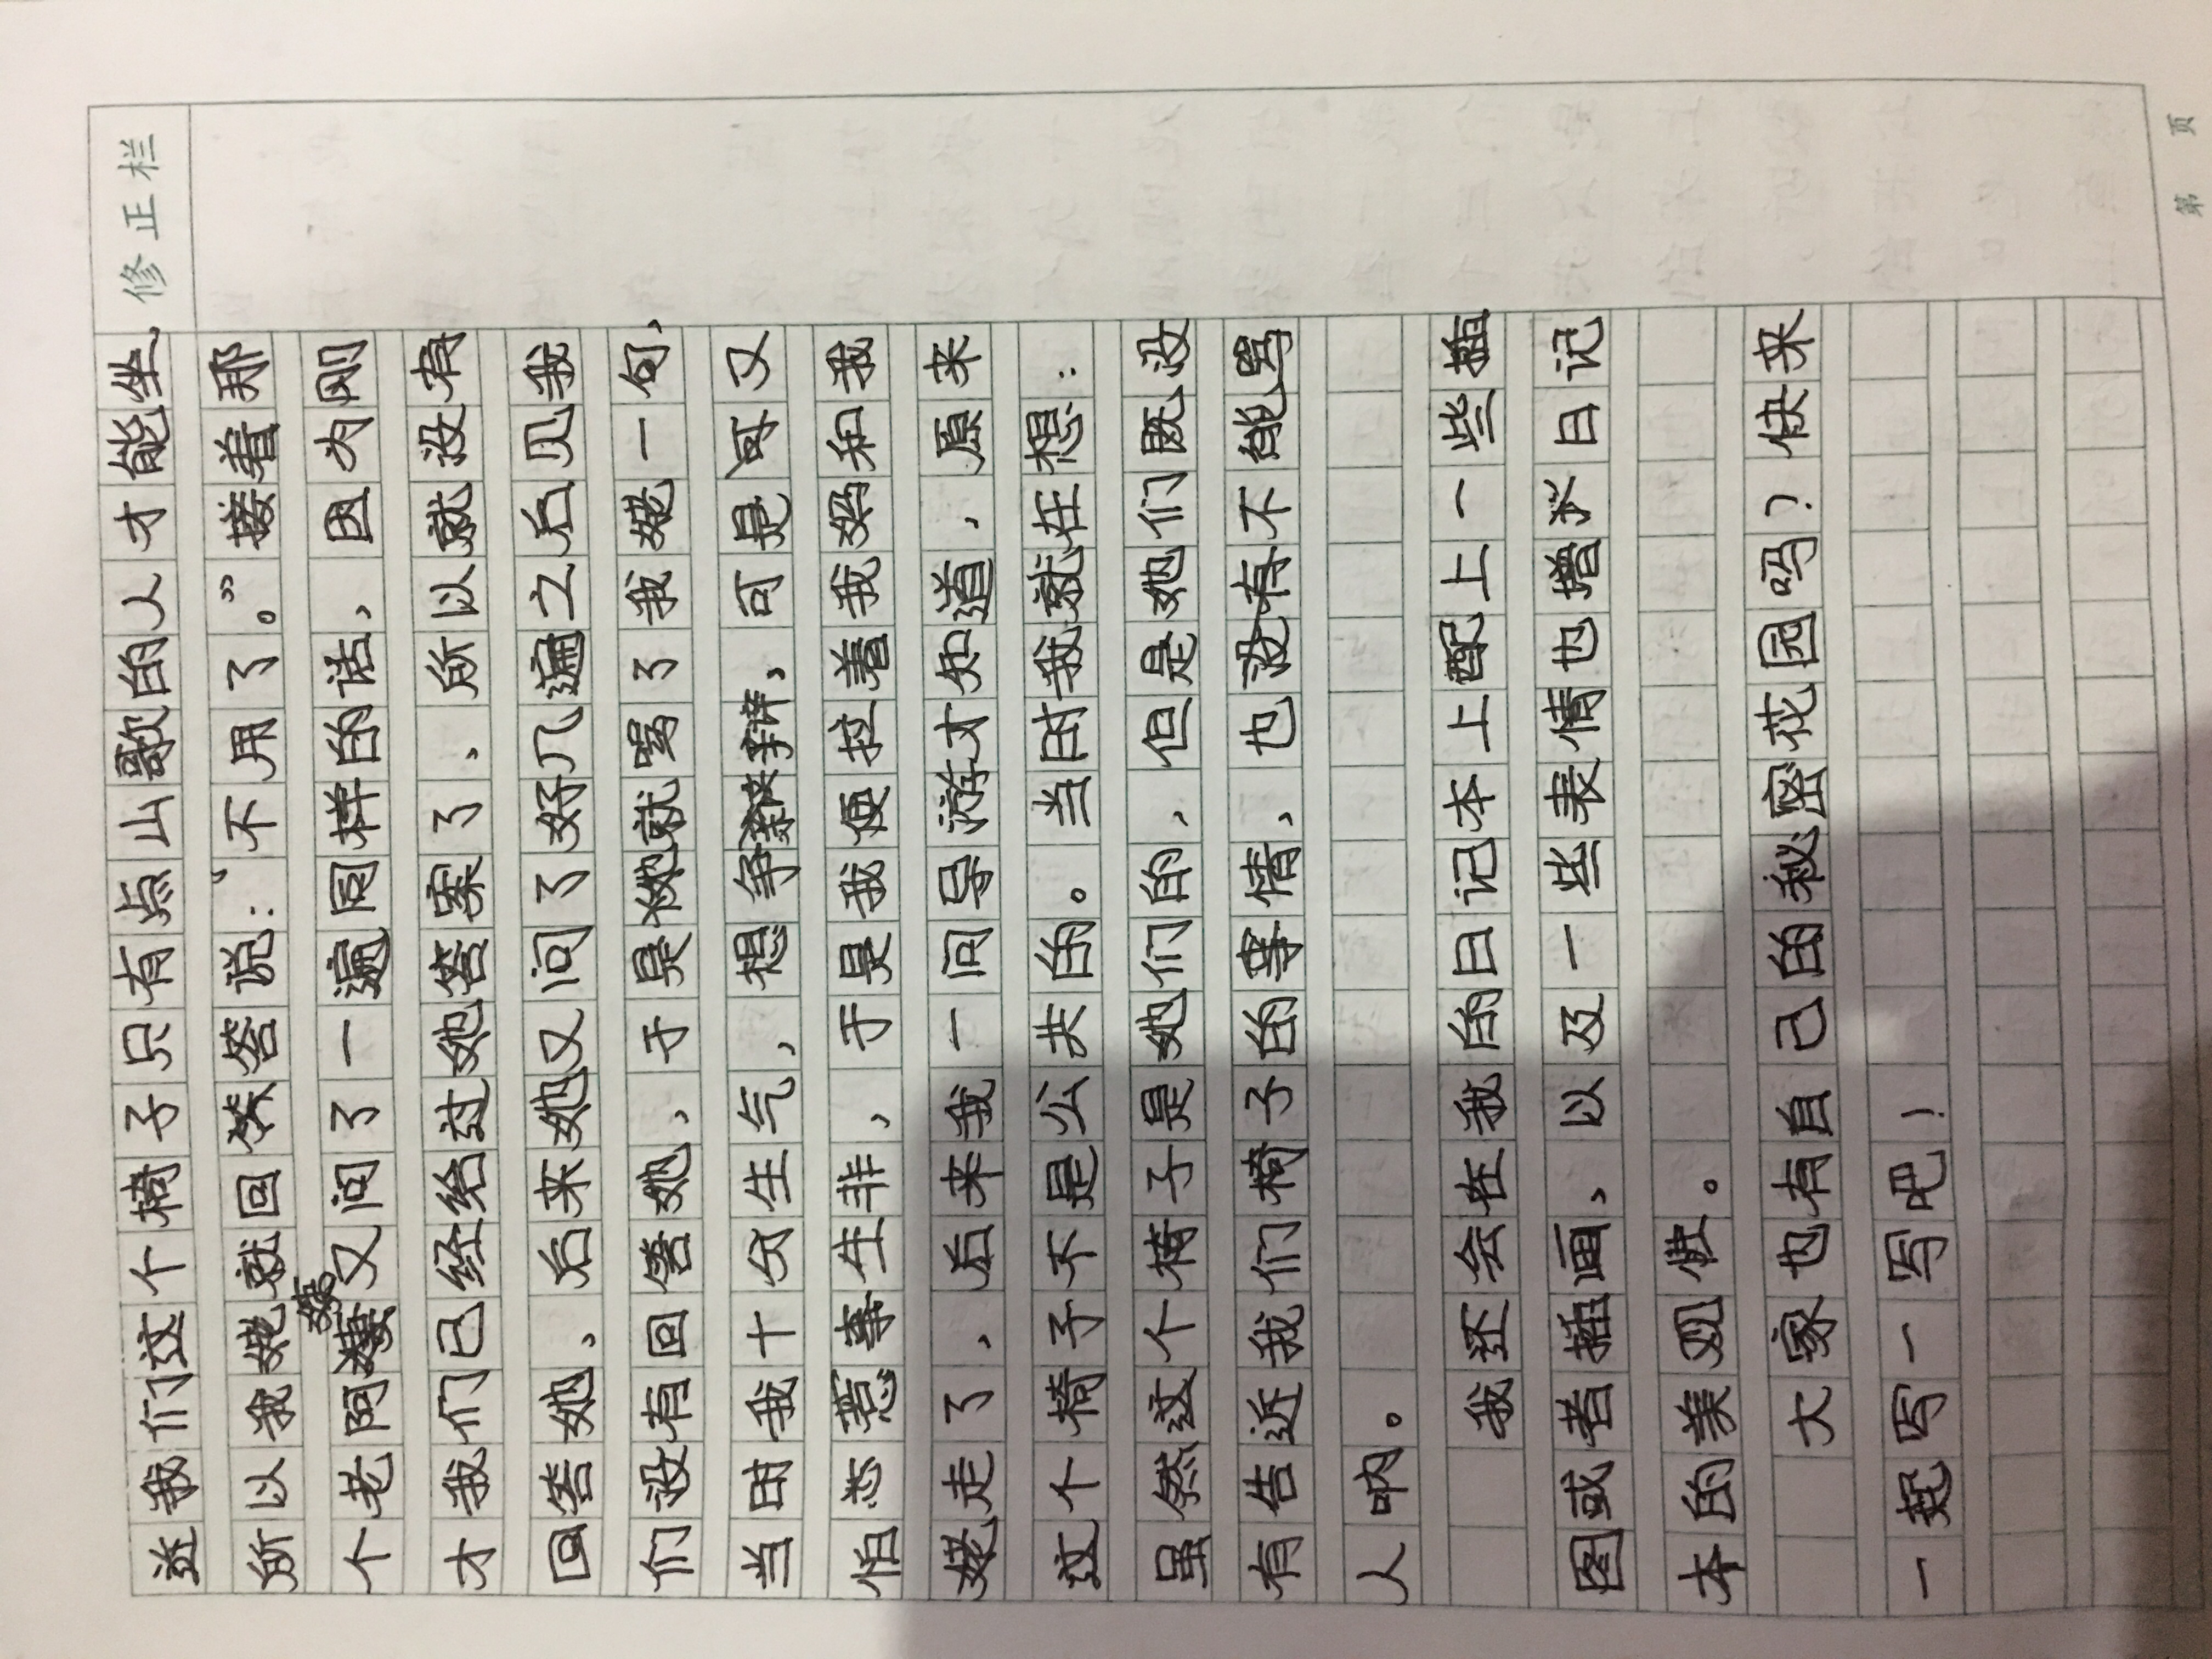 修正栏
迩我们这个椅子只有点山歌的人才能坐，
所以我姥就回答答说：“不用了。”接着那
个老阿婆又问了一遍同样的话，因为刚
才我们已经给过她答案了、所以就没有
回答她、后来她又问了好几遍之后见我
们没有回答她、于是她就骂了我姥一句，
当时我十分生气，想争辩，可是哥又
怕惹惹事生非，于是我便拉着我妈和我
姥走了、后来我一问导游才知道，原来
这个椅子不是公共的。当时我就在想：
虽然这个椅子是她们的，但是她们既没
有告近我们椅子的事情，也没有不能骂
人呐。
我还会在我的日记本上配上一些插
图或者插画，以及一些表情也增添日记
本的美观性。
大家也有自己的秘密花园吗？快来
一起写一写吧！
第 页